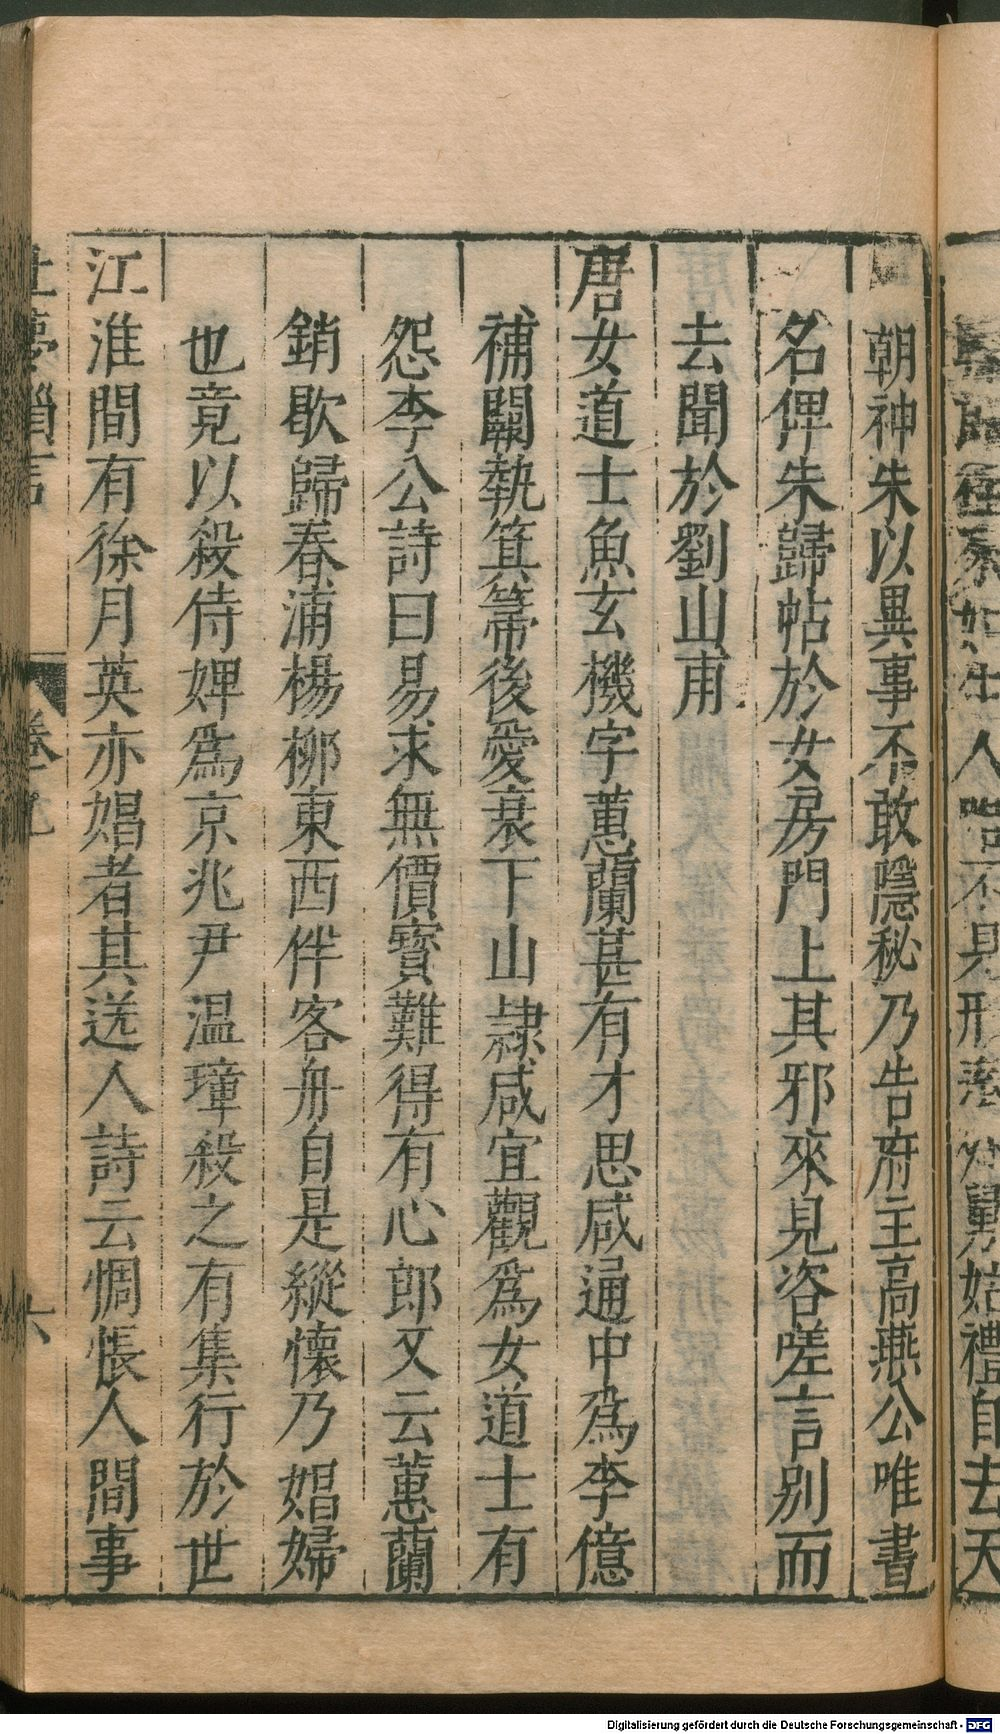 朝神朱以異事不敢隱秘乃告府主高燕公唯書
名俾朱歸帖於女房門上其邪來見咨嗟言別而
去聞於劉山甫
唐女道士魚玄機字蕙蘭甚有才思咸通中爲李億
補闕執箕箒後愛衰下山隷咸宜觀爲女道士有
怨李公詩曰易求無價寳難得有心郎又云蕙蘭
銷歇歸春浦楊柳東西伴客舟自是縱懷乃娼婦
也竟以殺侍婢爲京兆尹温璋殺之有集行於世
江淮間有徐月英亦娼者其送人詩云惆悵人間事
夢瑣言 卷九 六
Digitalisierung gefördert durch die Deutsche Forschungsgemeinschaft - DFG